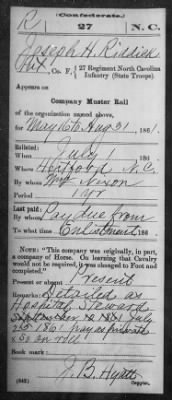 (Confederate.)
R 27 N.C.
Joseph H. Riddick
Pvt, Co. F, 27 Regiment North Carolina
Infantry (State Troops)
Appears on
Company Muster Roll
of the organization named above,
for May 16 to Aug 31, 1861.
Enlisted:
When July 186 .
Where Hertford, N.C.
By whom Wm Nixon
Period 1 yr
Last paid:
By whom Pay due from
To what time Enlistment 186 .
"This company was originally, in part,
a company of Horse. On learning that Cavalry
would not be required, it was changed to Foot and
completed."
Present or absent Present
Remarks: Detailed as
Hospital Steward
July
2nd 1861 pay as private
on roll
Book mark:
J. B. Hyatt
(642) Copyist.